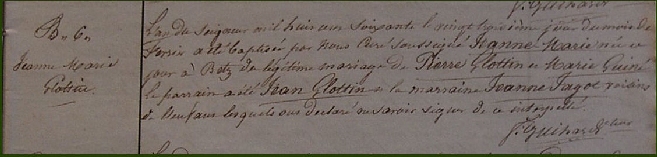 B. 6.
Jeanne Marie
Glottin
L'an du Seigneur mil huit cent soixante le vingt sixième jour du mois de
Février a été baptisée par nous Curé soussigné Jeanne Marie née ce
jour à Betz du légitime mariage de Pierre Glottin et Marie Guiné
le parrain a été Jean Glottin et la marraine Jeanne Fagot voisins
et lesquels ont déclaré ne savoir signer de ce interpellé
J. Guihard